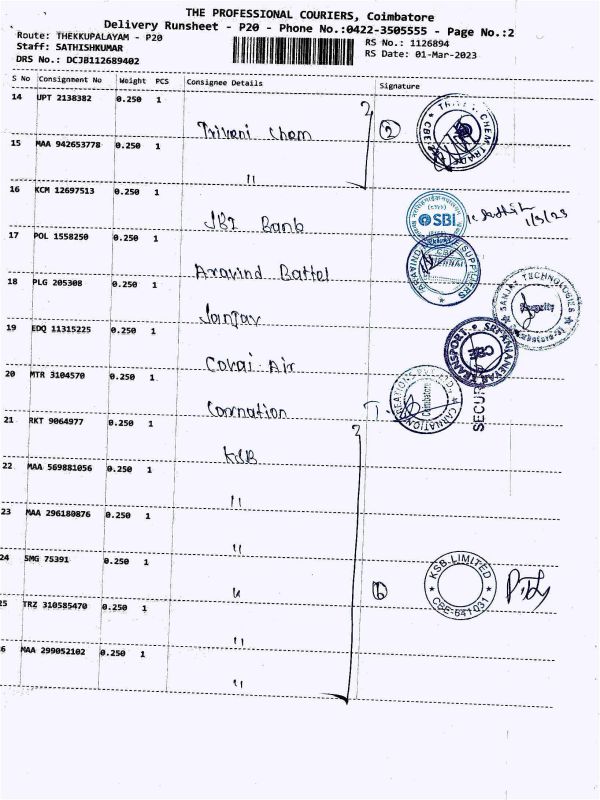 THE PROFESSIONAL COURIERS, Coimbatore
Delivery Runsheet - P20 - Phone No.:0422-3505555 - Page No.:2
Route: THEKKUPALAYAM - P20
RS No.: 1126894
Staff: SATHISHKUMAR
RS Date: 01-Mar-2023
DRS No.: DCJB112689402
S No Consignment No Weight PCS Consignee Details Signature
14 UPT 2138382 0.250 1
Trivani Chem
15 MAA 942653778 0.250 1
"
16 KCM 12697513 0.250 1
SBI Bank
SBI
1/3/23
17 POL 1558250 0.250 1
Aravind Battel
18 PLG 205308 0.250 1
Sanjay
SANJAY TECHNOLOGIES
Security
19 EDQ 11315225 0.250 1
Covai Air
TRANSPORT
CBE
20 MTR 3104570 0.250 1
Carnation
Coimbatore
SECUR
21 RKT 9064977 0.250 1
KSB
22 MAA 569881056 0.250 1
"
23 MAA 296180876 0.250 1
"
24 SMG 75391 0.250 1
"
6
KSB LIMITED
CBE-641 031
25 TRZ 310585470 0.250 1
"
6 MAA 299052102 0.250 1
"